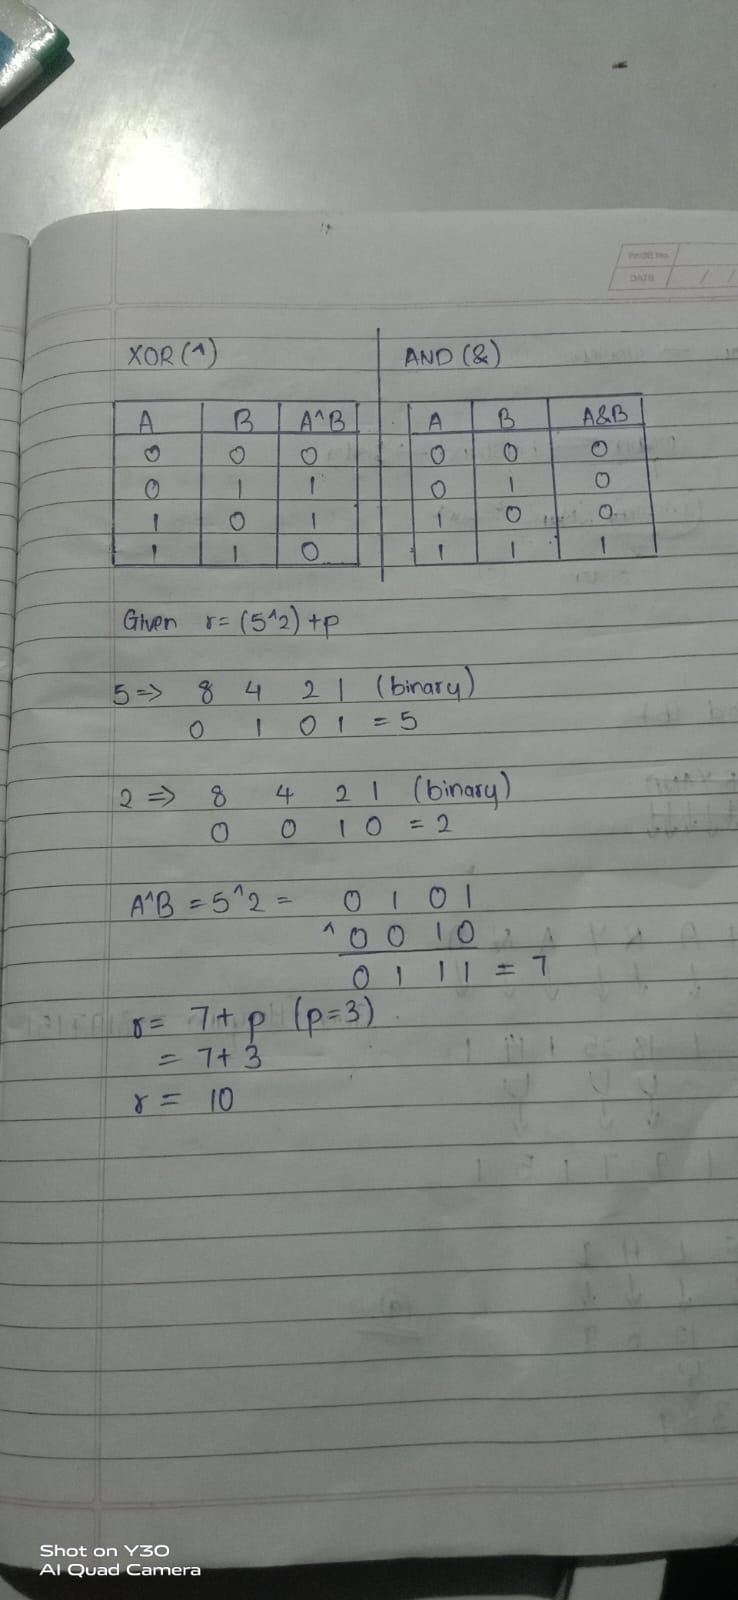 PAGE No.
DATE / /
XOR (^)
AND (&)
A B A^B
0 0 0
0 1 1
1 0 1
1 1 0
A B A&B
0 0 0
0 1 0
1 0 0
1 1 1
Given r= (5^2) +p
5=> 8 4 2 1 (binary)
0 1 0 1 = 5
2 => 8 4 2 1 (binary)
0 0 1 0 = 2
A^B = 5^2 = 0 1 0 1
^ 0 0 1 0
0 1 1 1 = 7
r= 7+ p (p=3)
= 7+ 3
r = 10
Shot on Y30
AI Quad Camera